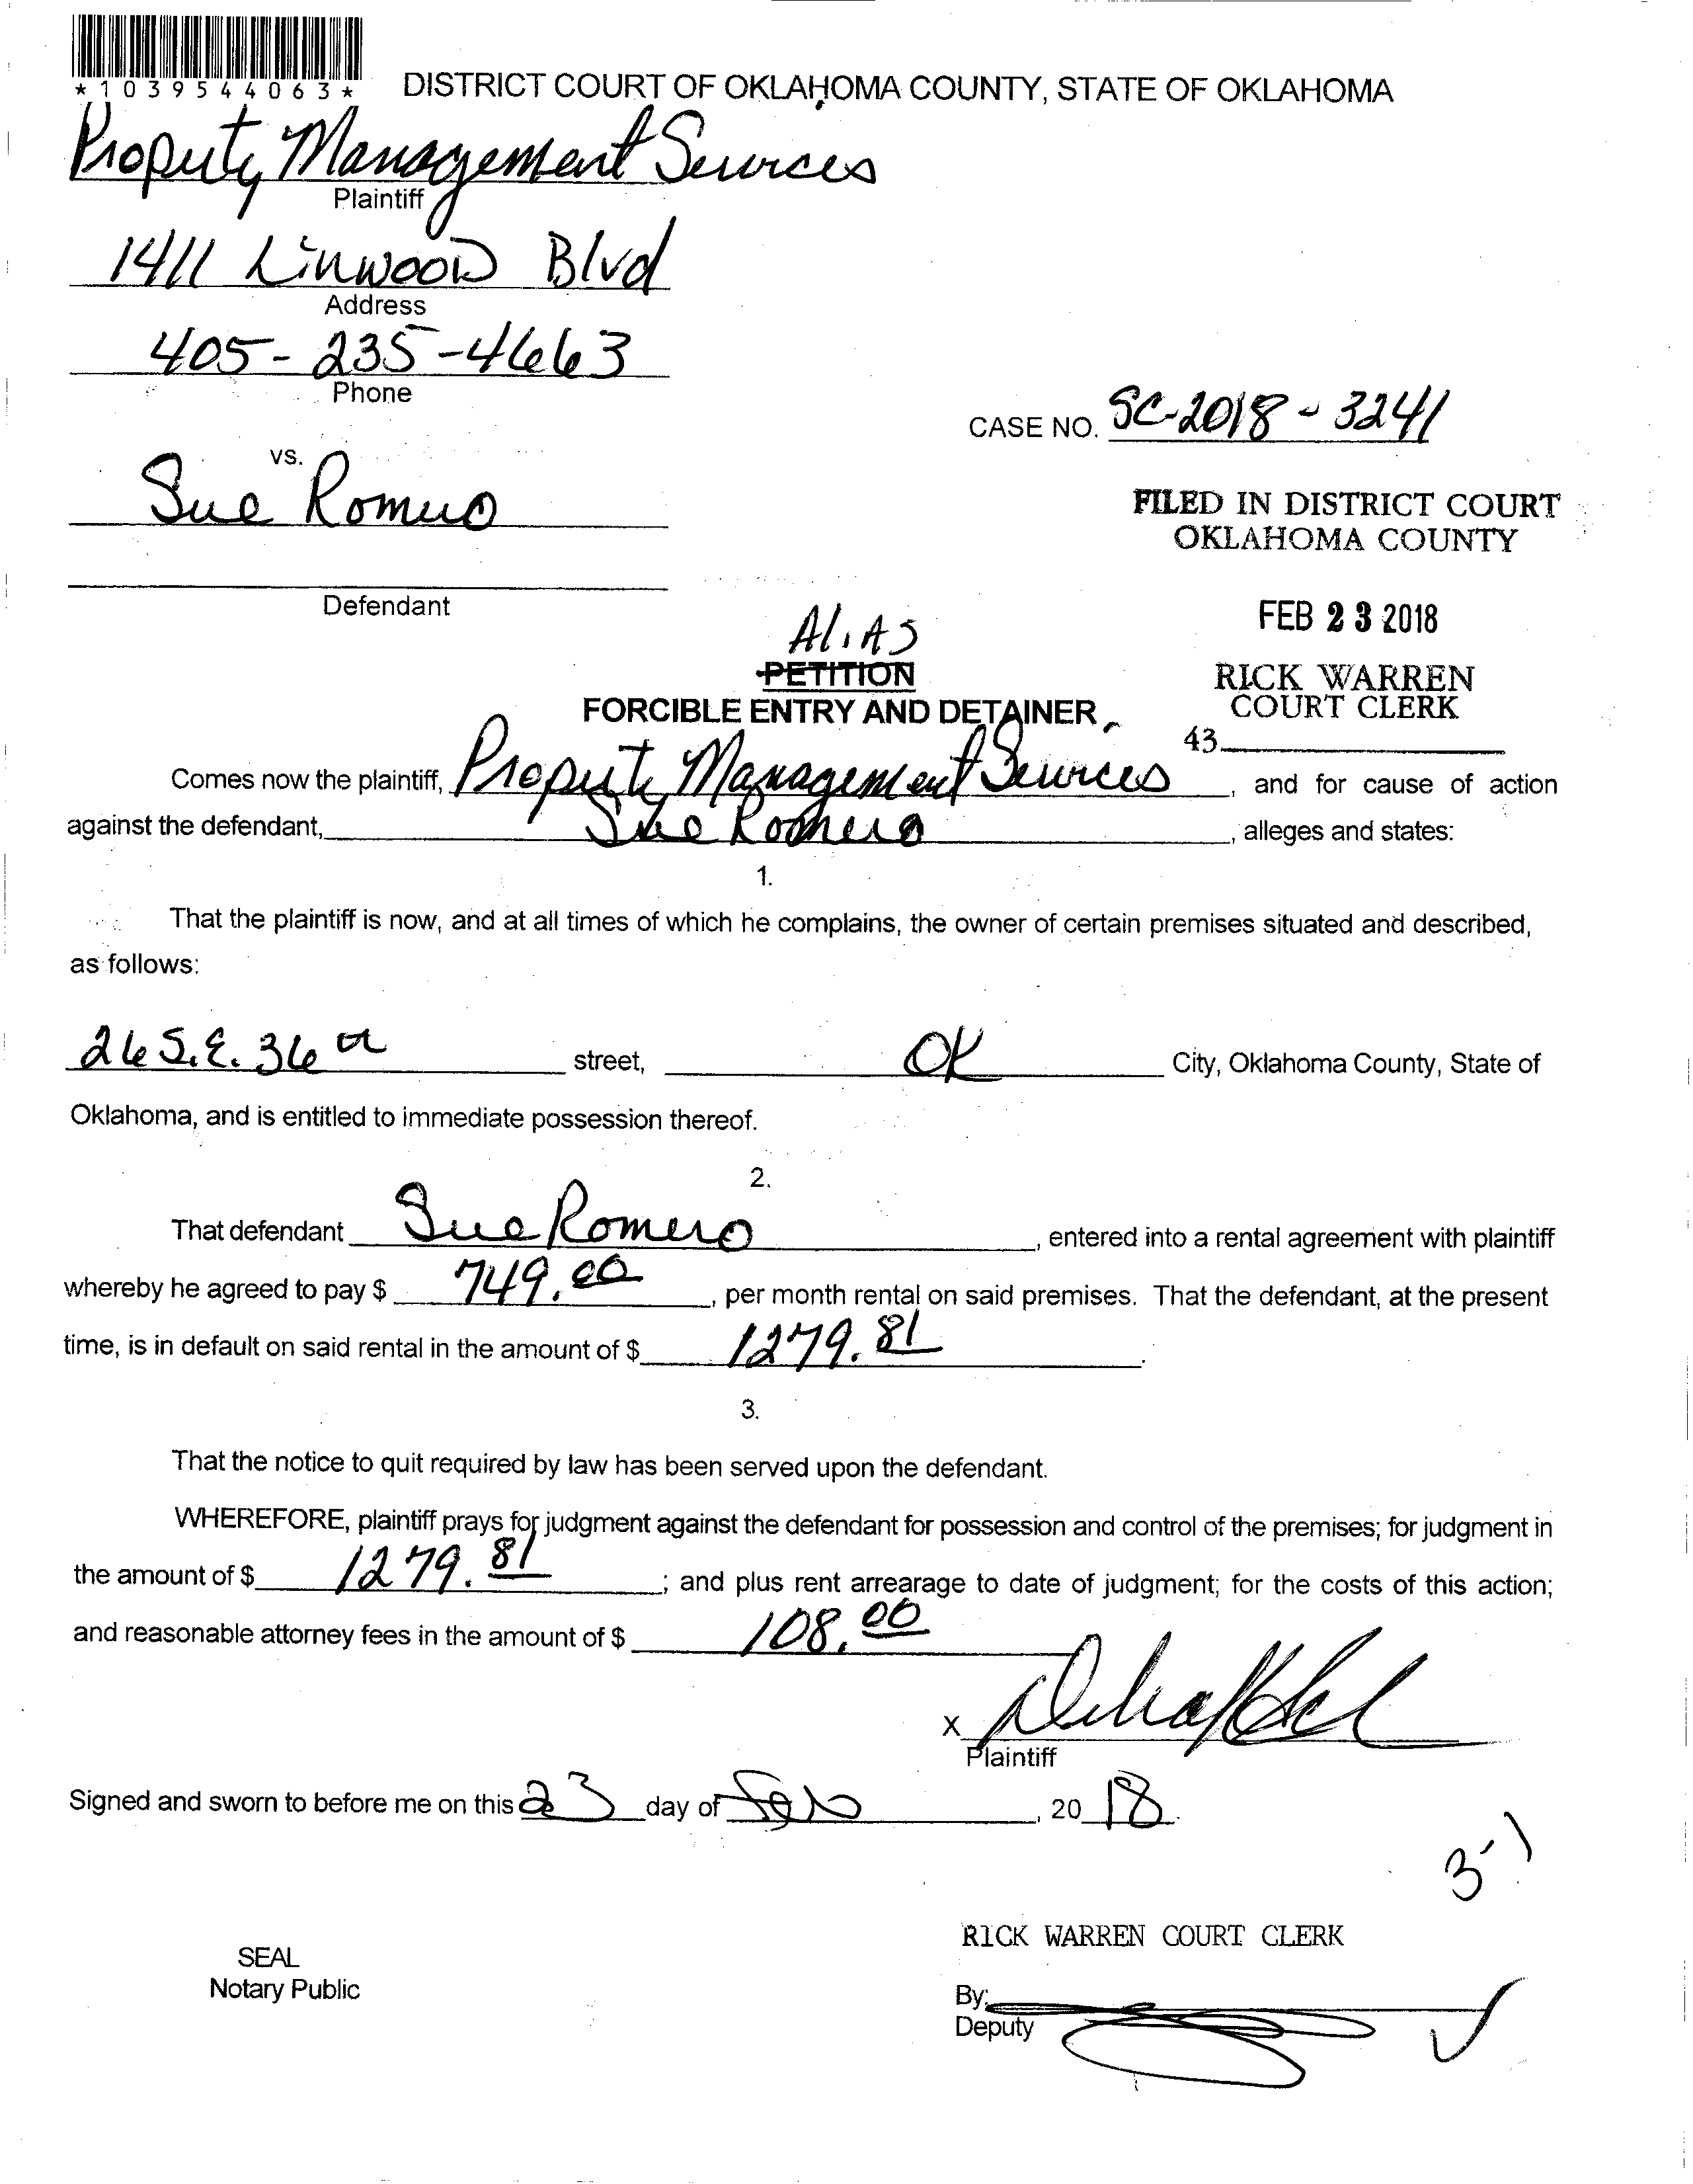 *1039544063*
DISTRICT COURT OF OKLAHOMA COUNTY, STATE OF OKLAHOMA
Property Management Services
Plaintiff
1411 Linwood Blvd
Address
405-235-4663
Phone
CASE NO. SC-2018-3241
vs.
Sue Romero
FILED IN DISTRICT COURT
OKLAHOMA COUNTY
Defendant
FEB 23 2018
Alias
PETITION
RICK WARREN
COURT CLERK
FORCIBLE ENTRY AND DETAINER
43
Comes now the plaintiff, Property Management Services, and for cause of action
against the defendant, Sue Romero, alleges and states:
1.
That the plaintiff is now, and at all times of which he complains, the owner of certain premises situated and described,
as follows:
26 S.E. 36th street, OK City, Oklahoma County, State of
Oklahoma, and is entitled to immediate possession thereof.
2.
That defendant Sue Romero, entered into a rental agreement with plaintiff
whereby he agreed to pay $ 749.00, per month rental on said premises. That the defendant, at the present
time, is in default on said rental in the amount of $ 1279.81.
3.
That the notice to quit required by law has been served upon the defendant.
WHEREFORE, plaintiff prays for judgment against the defendant for possession and control of the premises; for judgment in
the amount of $ 1279.81; and plus rent arrearage to date of judgment; for the costs of this action;
and reasonable attorney fees in the amount of $ 108.00
X
Plaintiff
Signed and sworn to before me on this 23 day of Feb, 2018.
3-1
RICK WARREN COURT CLERK
SEAL
Notary Public
By:
Deputy